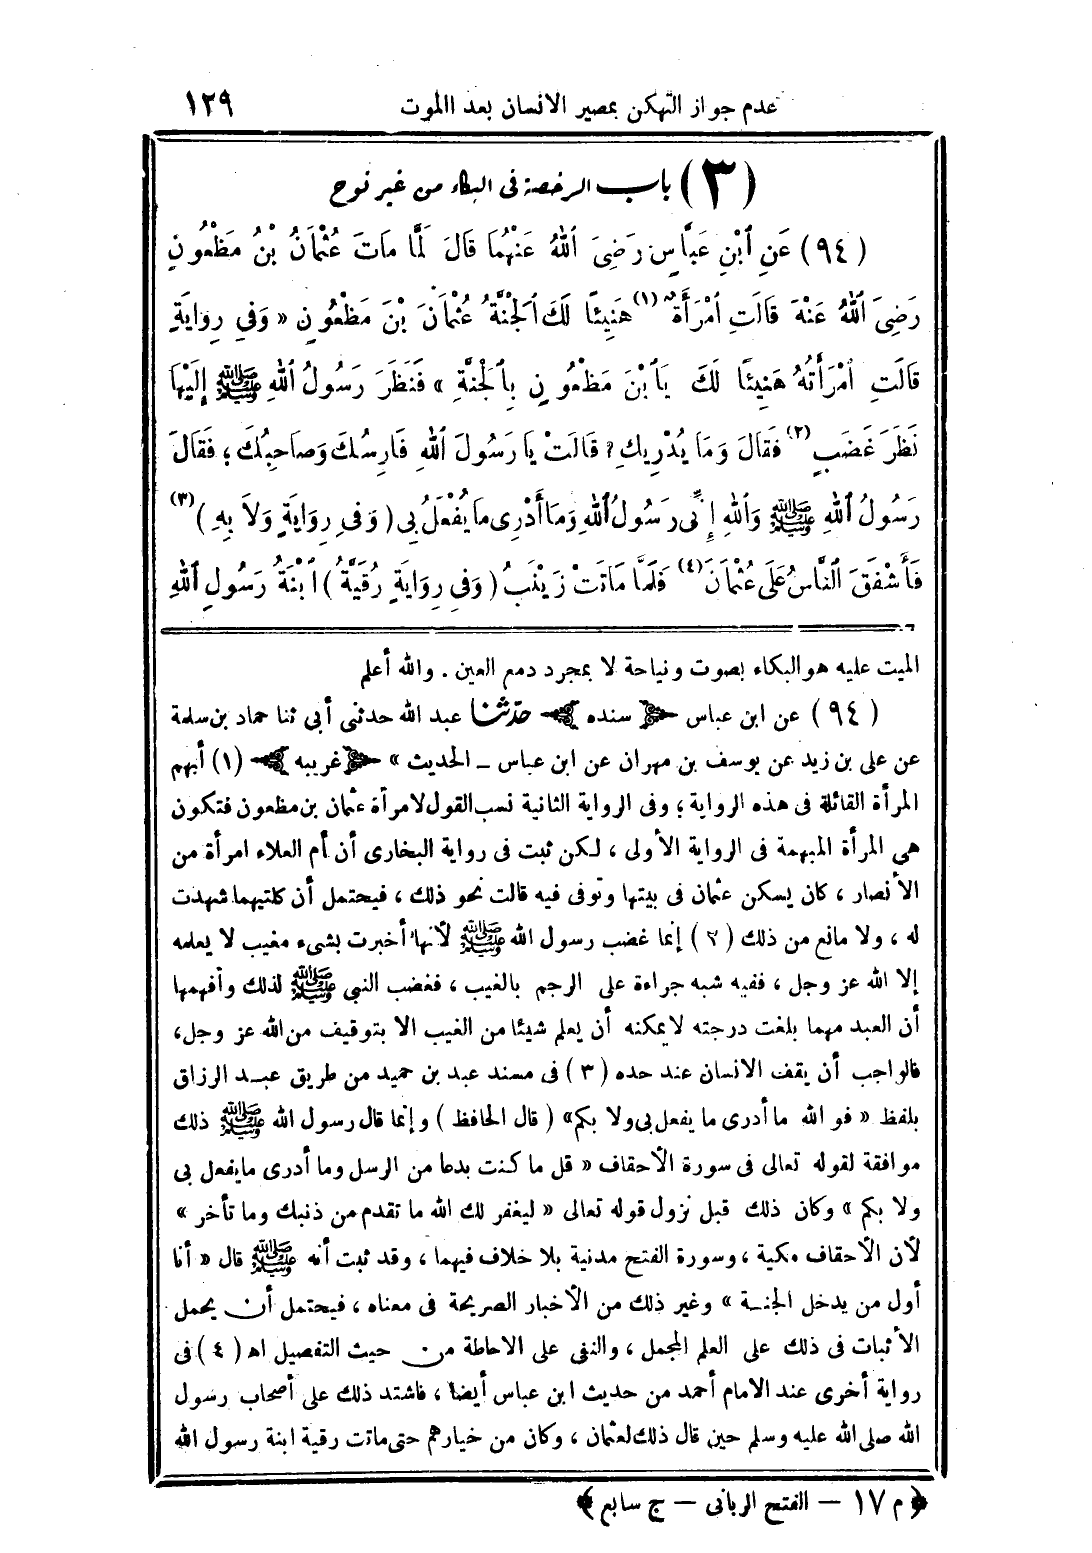 عدم جواز التهكن بمصير الانسان بعد الموت ١٢٩
(٣) باب الرخصة فى البكاء من غير نوح
(٩٤) عَنِ ٱبْنِ عَبَّاسٍ رَضِىَ ٱللهُ عَنْهُمَا قَالَ لَمَّا مَاتَ عُثْمَانُ بْنُ مَظْعُونٍ
رَضِىَ ٱللهُ عَنْهُ قَالَتِ ٱمْرَأَةٌ (١) هَنِيئًا لَكَ ٱلْجَنَّةُ عُثْمَانَ بْنَ مَظْعُونٍ « وَفِى رِوَايَةٍ
قَالَتِ ٱمْرَأَتُهُ هَنِيئًا لَكَ يَا ٱبْنَ مَظْعُونٍ بِٱلْجَنَّةِ » فَنَظَرَ رَسُولُ ٱللهِ ﷺ إِلَيْهَا
نَظَرَ غَضَبٍ (٢) فَقَالَ وَمَا يُدْرِيكِ؟ قَالَتْ يَا رَسُولَ ٱللهِ فَارِسُكَ وَصَاحِبُكَ ؛ فَقَالَ
رَسُولُ ٱللهِ ﷺ وَٱللهِ إِنِّى رَسُولُ ٱللهِ وَمَا أَدْرِى مَا يُفْعَلُ بِى ( وَفِى رِوَايَةٍ وَلاَ بِهِ ) (٣)
فَأَشْفَقَ ٱلنَّاسُ عَلَى عُثْمَانَ (٤) فَلَمَّا مَاتَتْ زَيْنَبُ ( وَفِى رِوَايَةٍ رُقَيَّةُ ) ٱبْنَةُ رَسُولِ ٱللهِ
الميت عليه هو البكاء بصوت ونياحة لا بمجرد دمع العين . والله أعلم
(٩٤) عن ابن عباس ﴿ سنده ﴾ حدّثنا عبد الله حدثنى أبى ثنا حماد بن سلمة
عن على بن زيد عن يوسف بن مهران عن ابن عباس ـ الحديث » ﴿ غريبه ﴾ (١) أبهم
المرأة القائلة فى هذه الرواية ؛ وفى الرواية الثانية نسب القول لامرأة عثمان بن مظعون فتكون
هى المرأة المبهمة فى الرواية الأولى ، لكن ثبت فى رواية البخارى أن أم العلاء امرأة من
الأنصار ، كان يسكن عثمان فى بيتها وتوفى فيه قالت نحو ذلك ، فيحتمل أن كلتيهما شهدت
له ، ولا مانع من ذلك (٢) إنما غضب رسول الله ﷺ لأنها أخبرت بشىء مغيب لا يعلمه
إلا الله عز وجل ، ففيه شبه جراءة على الرجم بالغيب ، فغضب النبى ﷺ لذلك وأفهمها
أن العبد مهما بلغت درجته لا يمكنه أن يعلم شيئا من الغيب الا بتوقيف من الله عز وجل،
فالواجب أن يقف الانسان عند حده (٣) فى مسند عبد بن حميد من طريق عبد الرزاق
بلفظ « فو الله ما أدرى ما يفعل بى ولا بكم» ( قال الحافظ ) وإنما قال رسول الله ﷺ ذلك
موافقة لقوله تعالى فى سورة الأحقاف « قل ما كنت بدعا من الرسل وما أدرى ما يفعل بى
ولا بكم » وكان ذلك قبل نزول قوله تعالى « ليغفر لك الله ما تقدم من ذنبك وما تأخر »
لأن الأحقاف مكية ، وسورة الفتح مدنية بلا خلاف فيهما ، وقد ثبت أنه ﷺ قال « أنا
أول من يدخل الجنة » وغير ذلك من الأخبار الصريحة فى معناه ، فيحتمل أن يحمل
الأثبات فى ذلك على العلم المجمل ، والنفى على الاحاطة من حيث التفصيل اهـ (٤) فى
رواية أخرى عند الامام أحمد من حديث ابن عباس أيضا ، فاشتد ذلك على أصحاب رسول
الله صلى الله عليه وسلم حين قال ذلك لعثمان ، وكان من خيارهم حتى ماتت رقية ابنة رسول الله
﴿ م ١٧ — الفتح الربانى — ج سابع ﴾